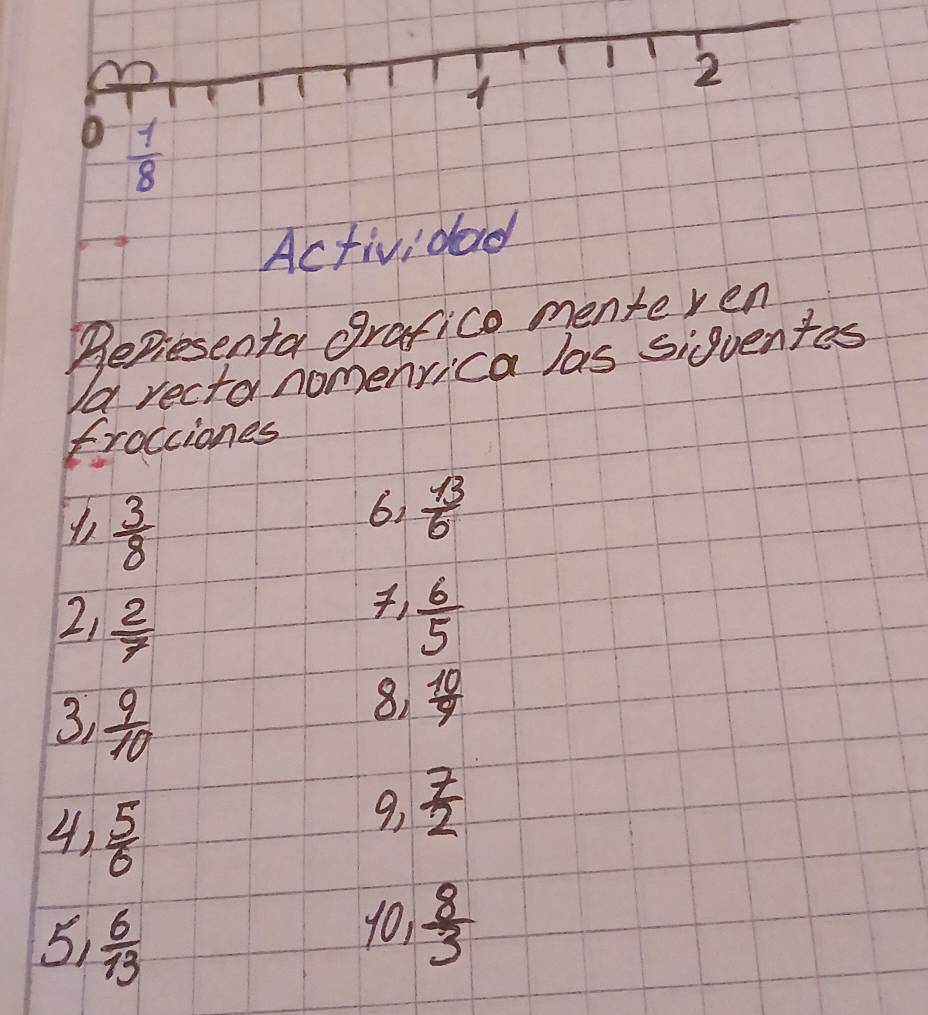 0 1 2
1/8
Actividad
Representa grafico mente y en
la recta nomenrica las siguentes
fracciones
1, 3/8
2, 2/7
3, 9/10
4, 5/6
5, 6/13
6, 13/6
7, 6/5
8, 10/9
9, 7/2
10, 8/3